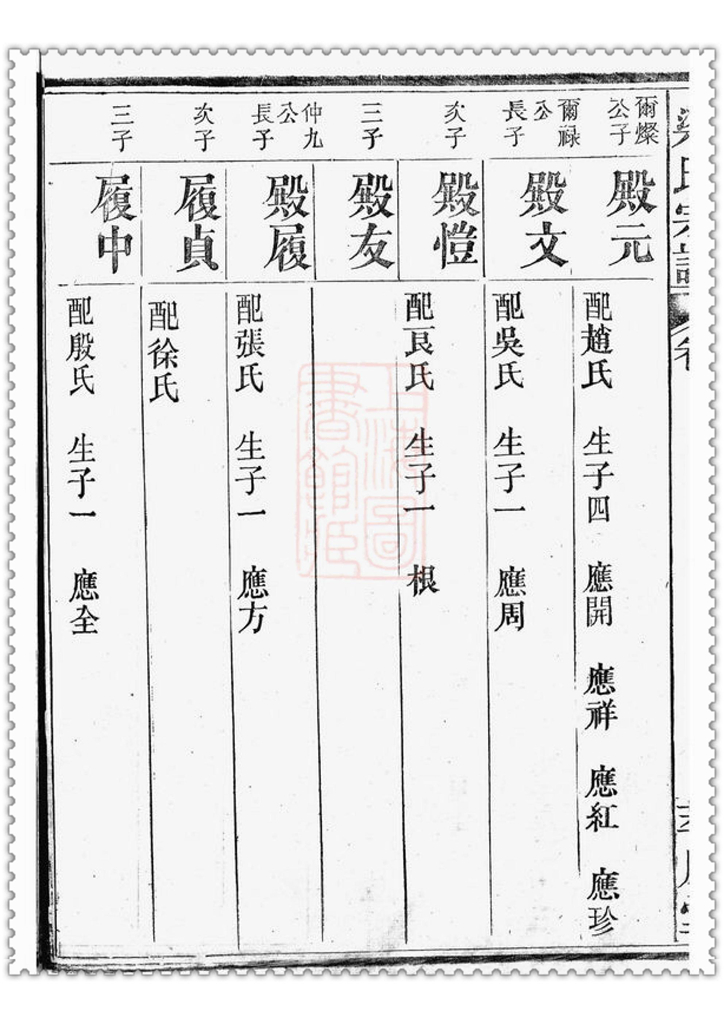 氏宗譜
爾燦公子
殿元
配趙氏　生子四　應開　應祥　應紅　應珍
爾祿公長子
殿文
配吳氏　生子一　應周
次子
殿愷
配艮氏　生子一　根
三子
殿友
仲九公長子
殿履
配張氏　生子一　應方
次子
履貞
配徐氏
三子
履中
配殷氏　生子一　應全
上海圖書館藏